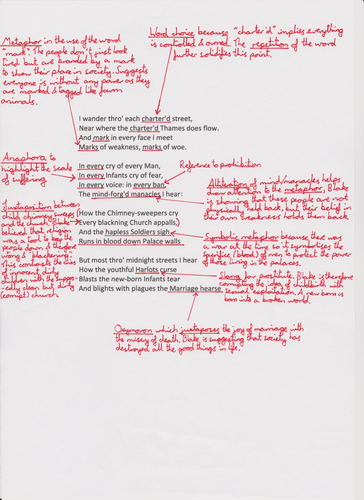 Metaphor in the use of the word
"mark". The people don't just look
tired but are branded by a mark
to show their place in society. Suggests
everyone is without any power as they
are marked & tagged like farm
animals.
Word choice because "charter'd" implies everything
is controlled & owned. The repetition of the word
further solidifies this point.
I wander thro' each charter'd street,
Near where the charter'd Thames does flow.
And mark in every face I meet
Marks of weakness, marks of woe.
Anaphora to
highlight the scale
of suffering
In every cry of every Man,
In every Infants cry of fear,
In every voice: in every ban,
The mind-forg'd manacles I hear:
Reference to prohibition
Alliteration of mind/manacles helps
draw attention to the metaphor, Blake
is showing that these people are not
physically held back, but their belief in
their own weakness holds them back
Juxtaposition between
child chimney sweeps
and the church, Blake
believed that religion
was a tool to keep the
people down & therefore
wrong & blackening.
This contrasts the cries
of innocent dirty
children with the
clean but dirty
(corrupt) church
How the Chimney-sweepers cry
Every blackning Church appalls,
And the hapless Soldiers sigh
Runs in blood down Palace walls
Symbolic metaphor because there
was a war at the time so it symbolises the
sacrifice (blood) of men to protect the power
of those living in the palaces.
But most thro' midnight streets I hear
How the youthful Harlots curse
Blasts the new-born Infants tear
And blights with plagues the Marriage hearse
Slang for prostitute. Blake is therefore
corrupting the idea of childbirth with
sexual exploitation. A new born is
born into a broken world.
Oxymoron which juxtaposes the joy of marriage with
the misery of death. Blake is suggesting that society has
destroyed all the good things in life.